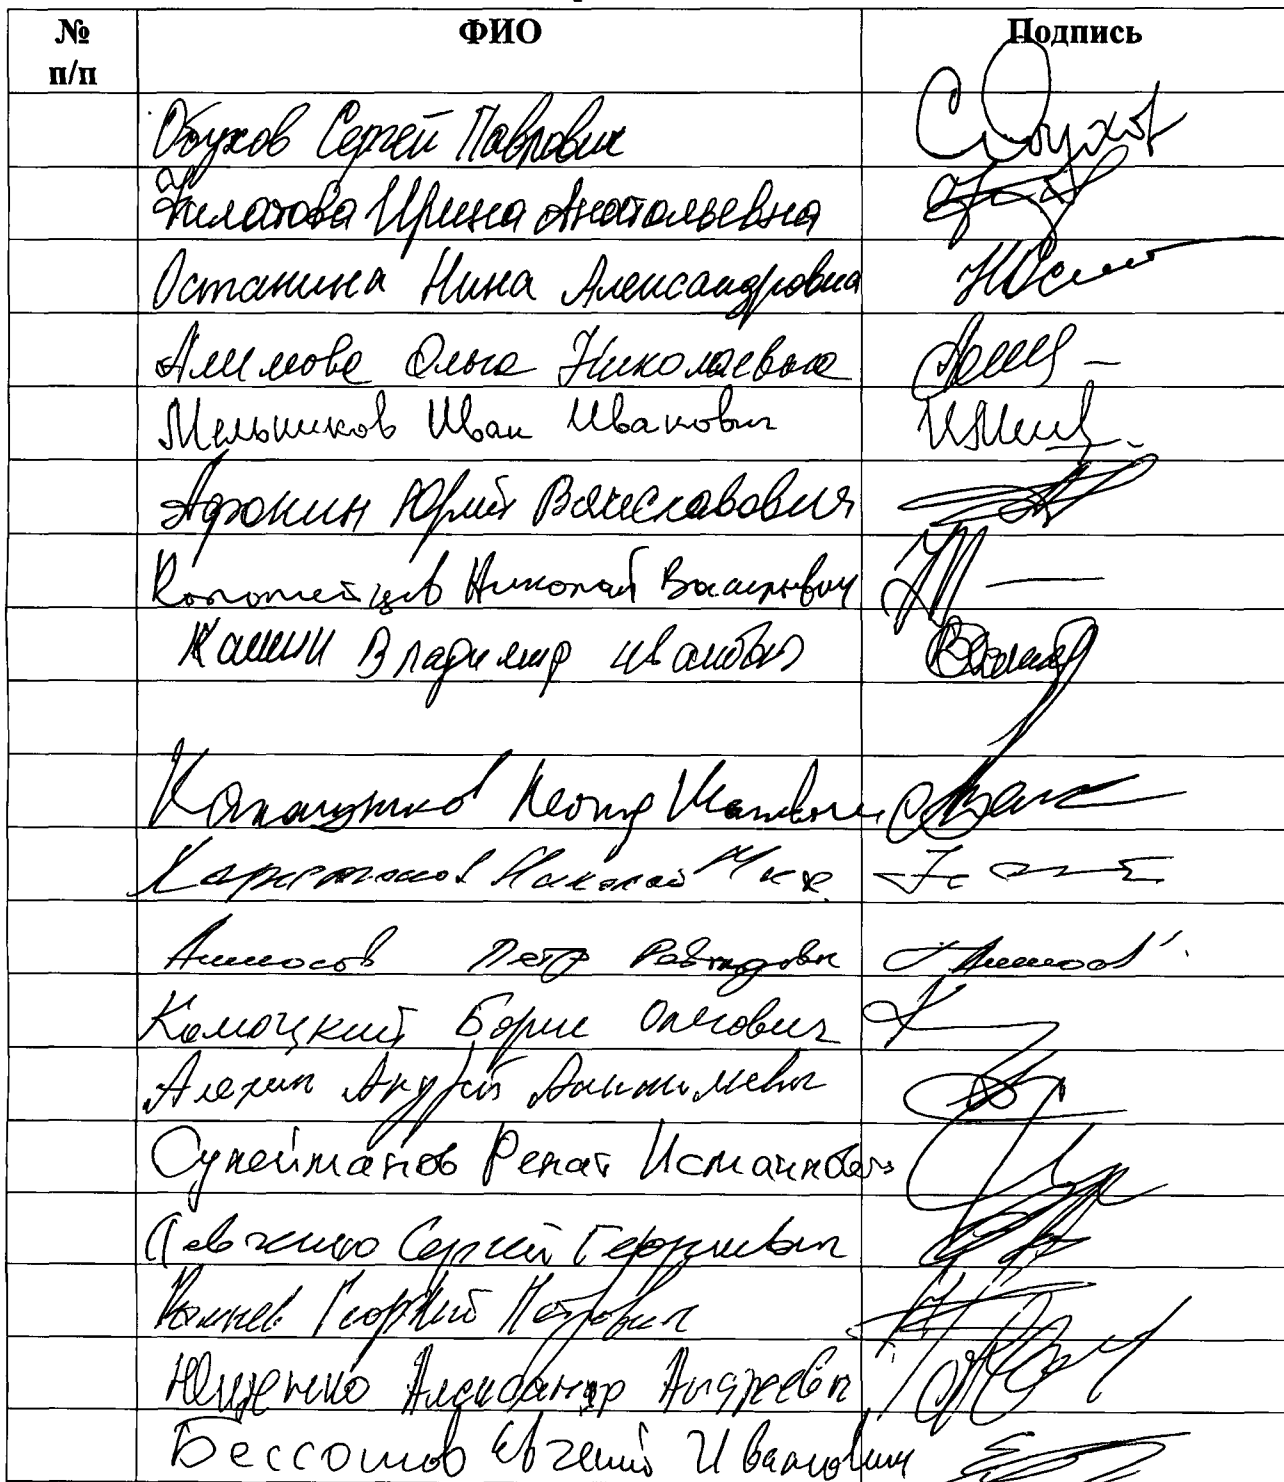 № п/п ФИО Подпись
Обухов Сергей Павлович СОбухов
Филатова Ирина Анатольевна
Останина Нина Александровна
Алимова Ольга Николаевна
Мельников Иван Иванович
Афонин Юрий Вячеславович
Коломейцев Николай Васильевич
Кашин Владимир Иванович
Калашников Леонид Иванович
Харитонов Николай Мих
Аммосов Петр Револьдович
Комоцкий Борис Олегович
Алехин Андрей Анатольевич
Сулейманов Ренат Исмаилович
Левченко Сергей Георгиевич
Камнев Георгий Петрович
Ющенко Александр Андреевич
Бессонов Евгений Иванович